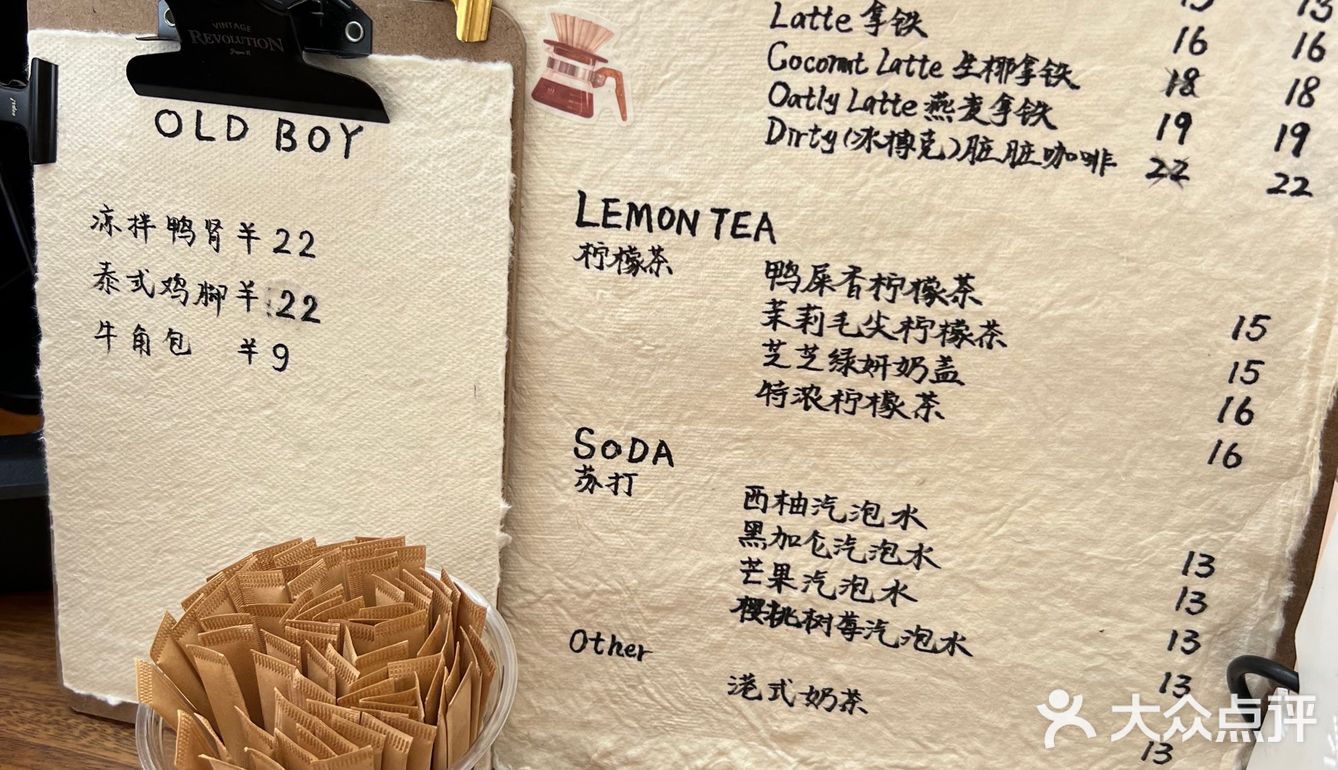 VINTAGE
REVOLUTION
OLD BOY
凉拌鸭肾 ¥22
泰式鸡脚 ¥22
牛角包 ¥9
Latte 拿铁 16 16
Coconut Latte 生椰拿铁 18 18
Oatly Latte 燕麦拿铁 19 19
Dirty(冰搏克)脏脏咖啡 22 22
LEMON TEA
柠檬茶
鸭屎香柠檬茶 15
茉莉毛尖柠檬茶 15
芝芝绿妍奶盖 16
特浓柠檬茶 16
SODA
苏打
西柚汽泡水 13
黑加仑汽泡水 13
芒果汽泡水 13
樱桃树莓汽泡水 13
Other
港式奶茶 13
大众点评